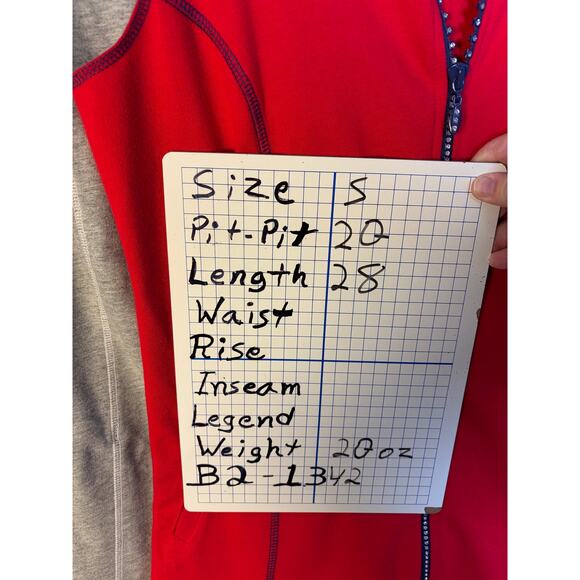 Size S
Pit-Pit 20
Length 28
Waist
Rise
Inseam
Legend
Weight 20 oz
B2-1342